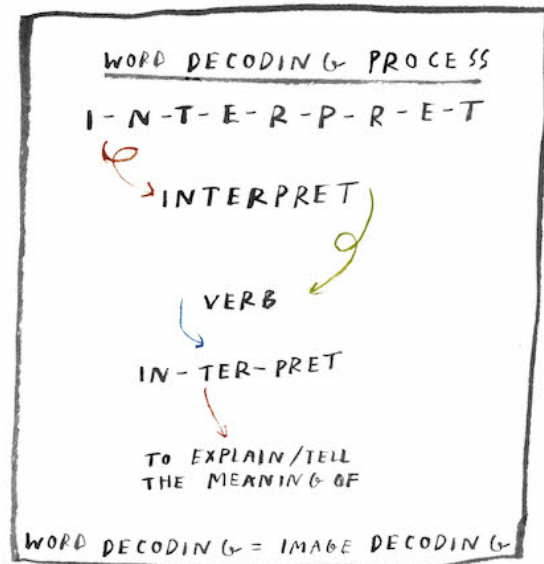 WORD DECODING PROCESS
I-N-T-E-R-P-R-E-T
INTERPRET
VERB
IN-TER-PRET
TO EXPLAIN/TELL
THE MEANING OF
WORD DECODING = IMAGE DECODING